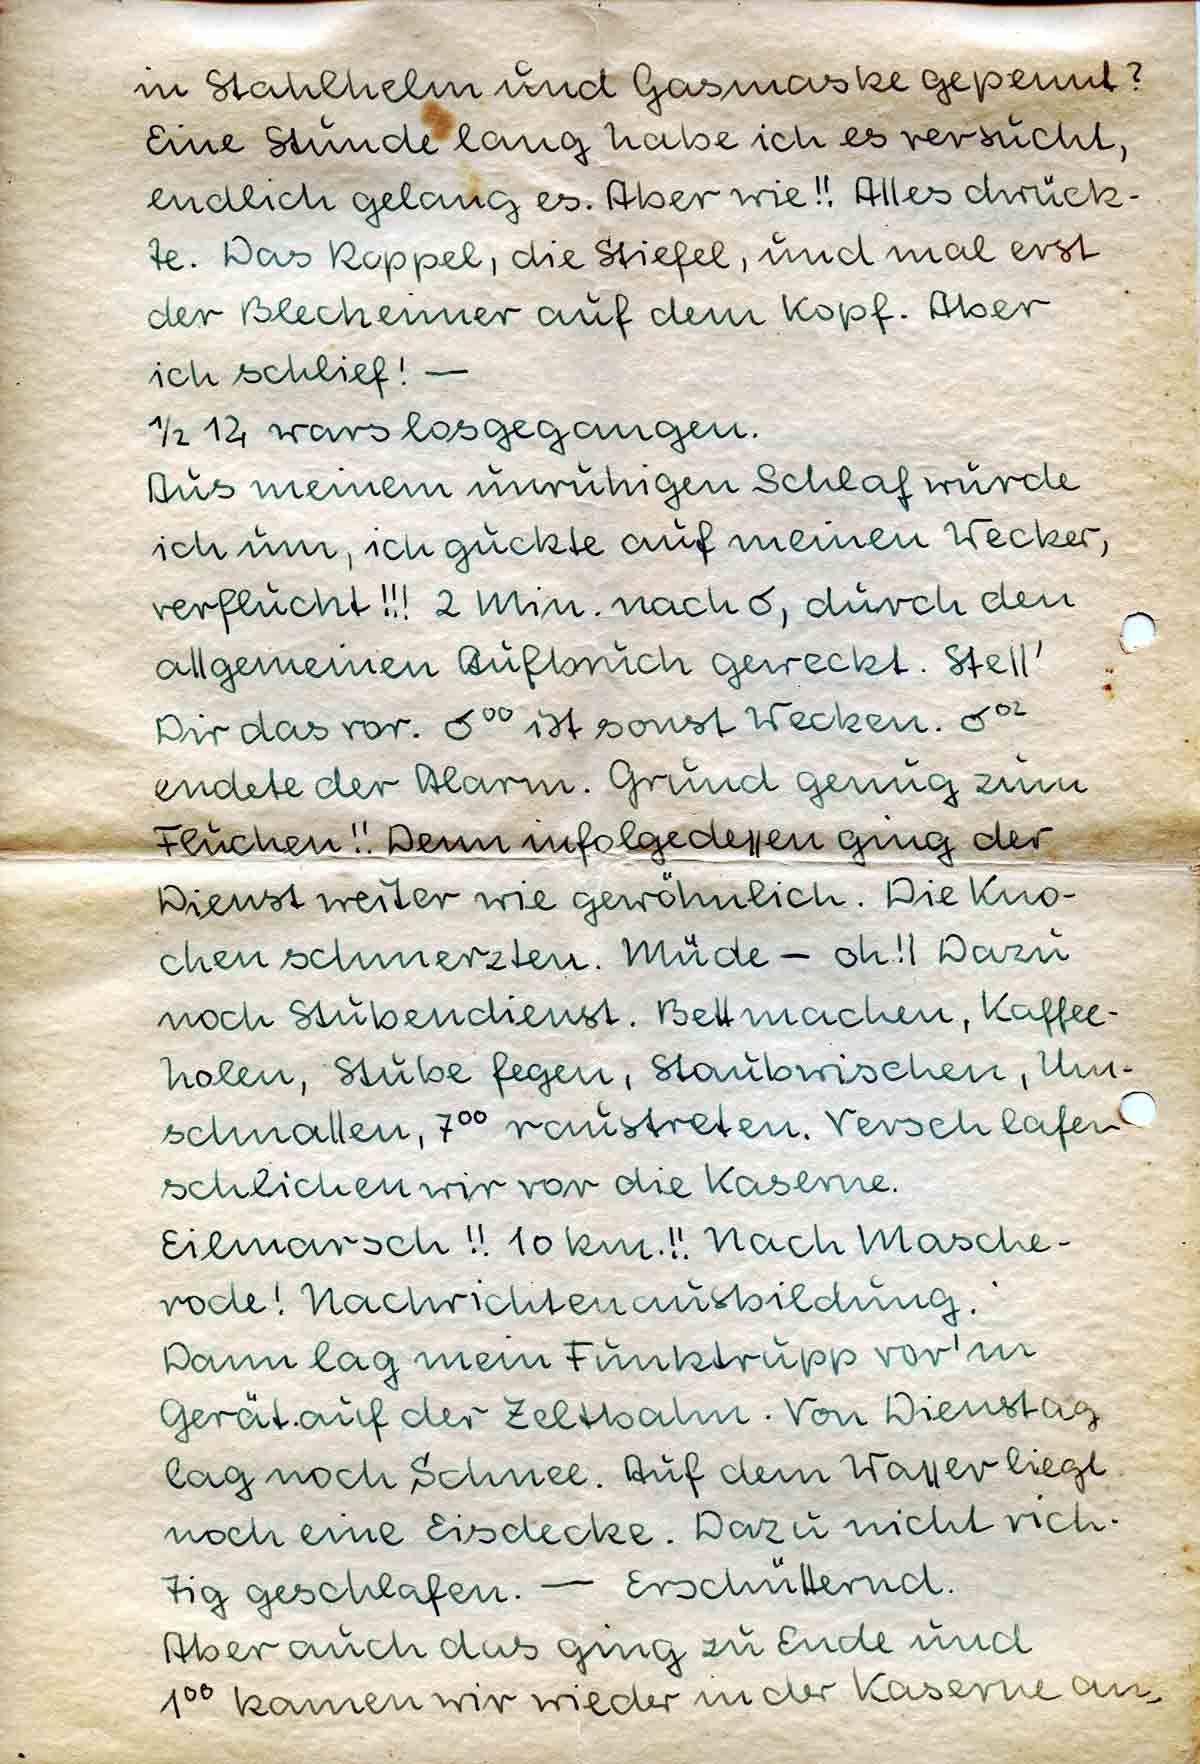 in Stahlhelm und Gasmaske gepennt?
Eine Stunde lang habe ich es versucht,
endlich gelang es. Aber wie!! Alles drück-
te. Das Koppel, die Stiefel, und mal erst
der Blecheimer auf dem Kopf. Aber
ich schlief! —
1/2 12, wars losgegangen.
Aus meinem unruhigen Schlaf wurde
ich um, ich guckte auf meinen Wecker,
verflucht!!! 2 Min. nach 6, durch den
allgemeinen Aufbruch geweckt. Stell'
Dir das vor. 6⁰⁰ ist sonst Wecken. 6⁰²
endete der Alarm. Grund genug zum
Fluchen!! Denn infolgedessen ging der
Dienst weiter wie gewöhnlich. Die Kno-
chen schmerzten. Müde — oh!! Dazu
noch Stubendienst. Bettmachen, Kaffee-
holen, Stube fegen, Staubwischen, Um-
schnallen, 7⁰⁰ raustreten. Verschlafen
schlichen wir vor die Kaserne.
Eilmarsch!! 10 km.!! Nach Masche-
rode! Nachrichtenausbildung.
Dann lag mein Funktrupp vor'm
Gerät auf der Zeltbahn. Von Dienstag
lag noch Schnee. Auf dem Wasser liegt
noch eine Eisdecke. Dazu nicht rich-
tig geschlafen. — Erschütternd.
Aber auch das ging zu Ende und
1⁰⁰ kamen wir wieder in der Kaserne an,